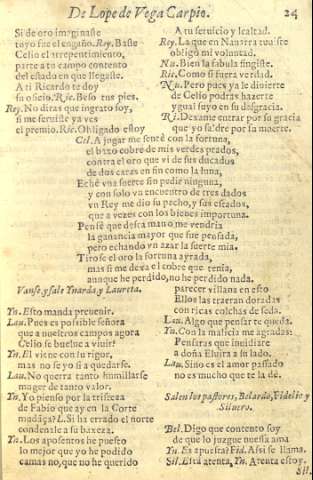 De Lope de Vega Carpio. 24
Si de oro imaginaste
tuyo fue el engaño. Rey. Baste
Celio el arrepentimiento,
parte a tu campo contento
del estado en que llegaste.
A ti Ricardo te doy
su oficio. Ric. Beso tus pies.
Rey. No diras que ingrato soy,
si me seruiste ya ves
el premio. Ric. Obligado estoy
A tu seruicio y lealtad.
Rey. La que en Nauarra tuuiste
obligò mi voluntad.
Nu. Bien la fabula fingiste.
Ric. Como si fuera verdad.
Nu. Pero pues ya le diuierte
de Celio podràs hazerte
ygual suyo en su desgracia.
Ri. Dexame entrar por su gracia
que yo saldrè por su muerte.
Cel. A jugar me sentè con la fortuna,
el baxo cobre de mis verdes prados,
contra el oro que vi de sus ducados
de dos caras en fin como la luna,
Echè vna suerte sin pedir ninguna,
y con solo vn encuentro de tres dados
vn Rey me dio su pecho, y sus estados,
que a vezes con los bienes importuna.
Pensè que desta mano me vendria
la ganancia mayor que fue pensada,
pero echando vn azar la suerte mia.
Tirose el oro la fortuna ayrada,
mas si me dexa el cobre que tenia,
aunque he perdido, no he perdido nada.
Vanse y sale Ynarda y Laureta.
Yn. Esto manda preuenir.
Lau. Pues es possible señora
que a nuestros campos agora
Celio se buelue a viuir?
Yn. El viene con su rigor,
mas no se yo si a quedarse.
Lau. No querra tanto humillarse
muger de tanto valor.
Yn. Yo pienso por la tristeza
de Fabio que ay en la Corte
madãça? L. Si ha errado el norte
condenale a su baxeza.
Yn. Los aposentos he puesto
lo mejor que yo he podido
camas no, que no he querido
parecer villana en esto
Ellos las traeran doradas
con ricas colchas de seda.
Lau. Algo que pensar te queda.
Yn. Con la malicia me agradas:
Pensaras que inuidiare
a doña Eluira a su lado.
Lau. Sino es el amor passado
no es mucho que te la dè.
Salen los pastores, Belardo, Fidelio y
Siluero.
Bel. Digo que contento soy
de que lo juzgue nuestra ama
Yn. Es apuesta? Fid. Assi se llama.
Sil. Està atenta, Yn. Atenta estoy.
Sil.